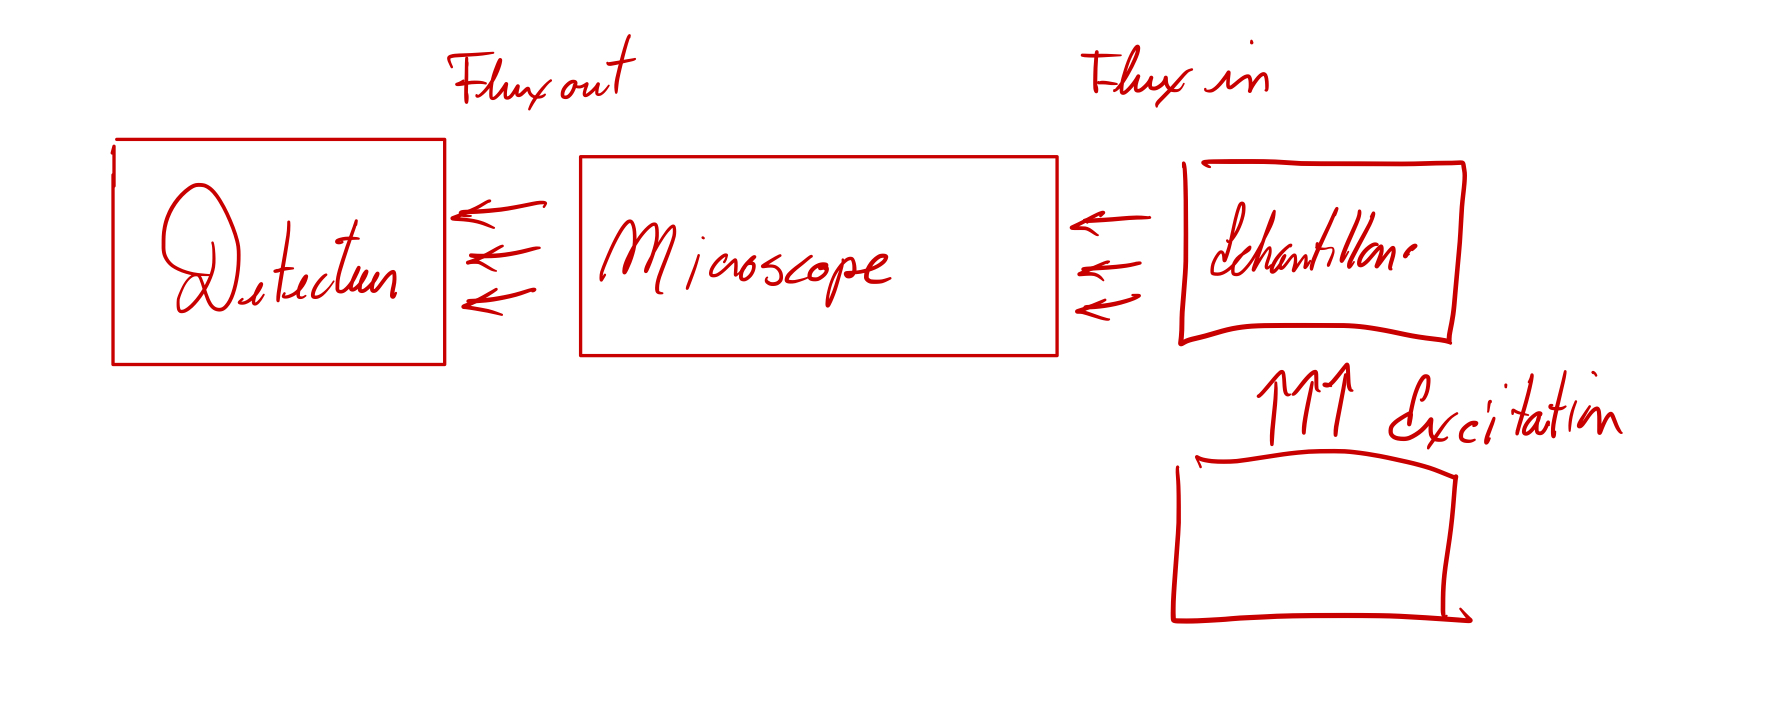 Flux out
Flux in
Detecteur
Microscope
Echantillon
Excitation